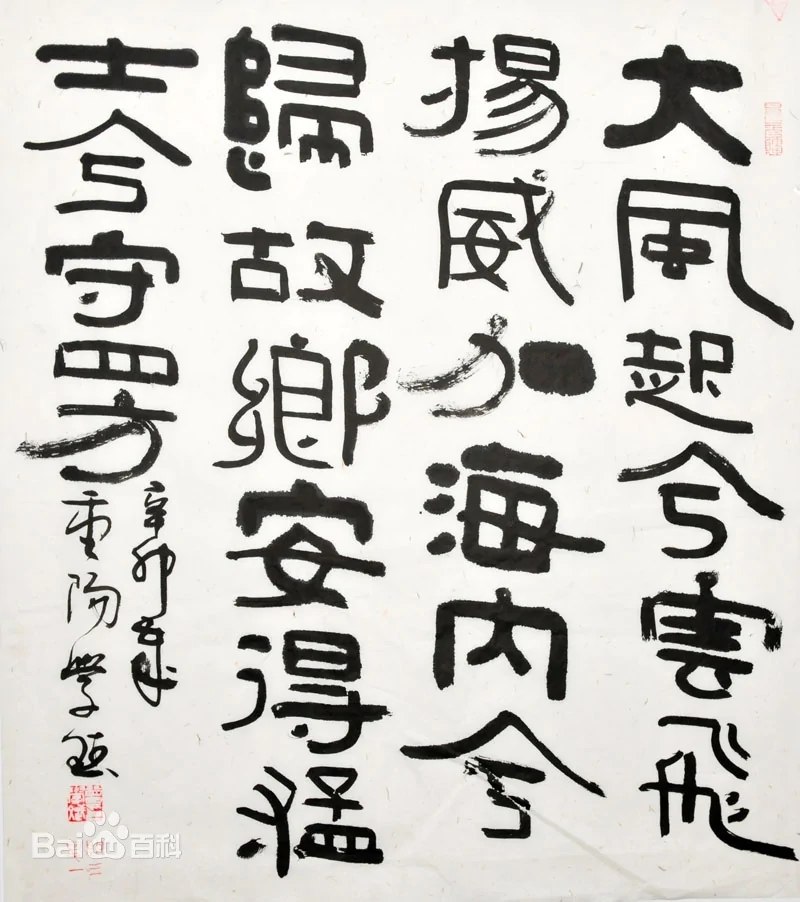 大風起兮雲飛
揚威加海内兮
歸故鄉安得猛
士兮守四方
辛卯歲
重陽學
Bai du 百科